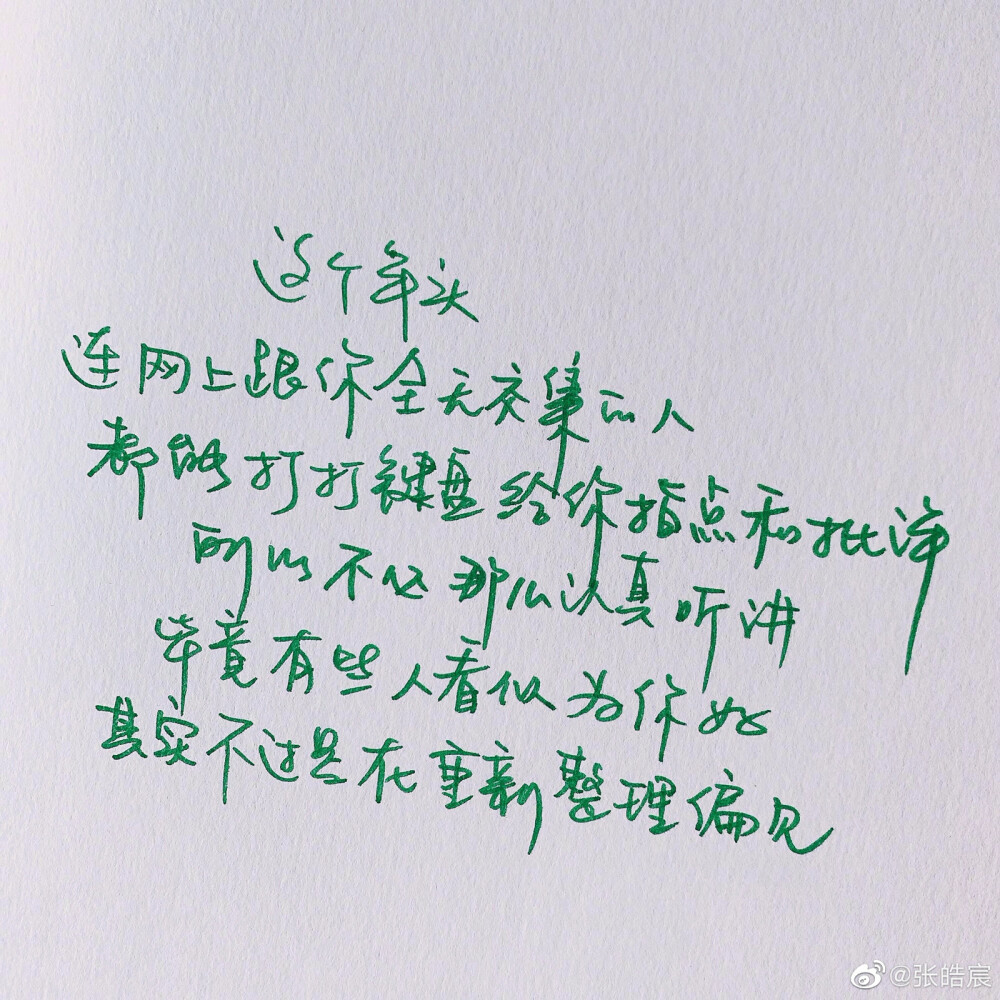 这个年头
连网上跟你全无交集的人
都能打打键盘给你指点和批评
所以不必那么认真听讲
毕竟有些人看似为你好
其实不过是在重新整理偏见
@张皓宸